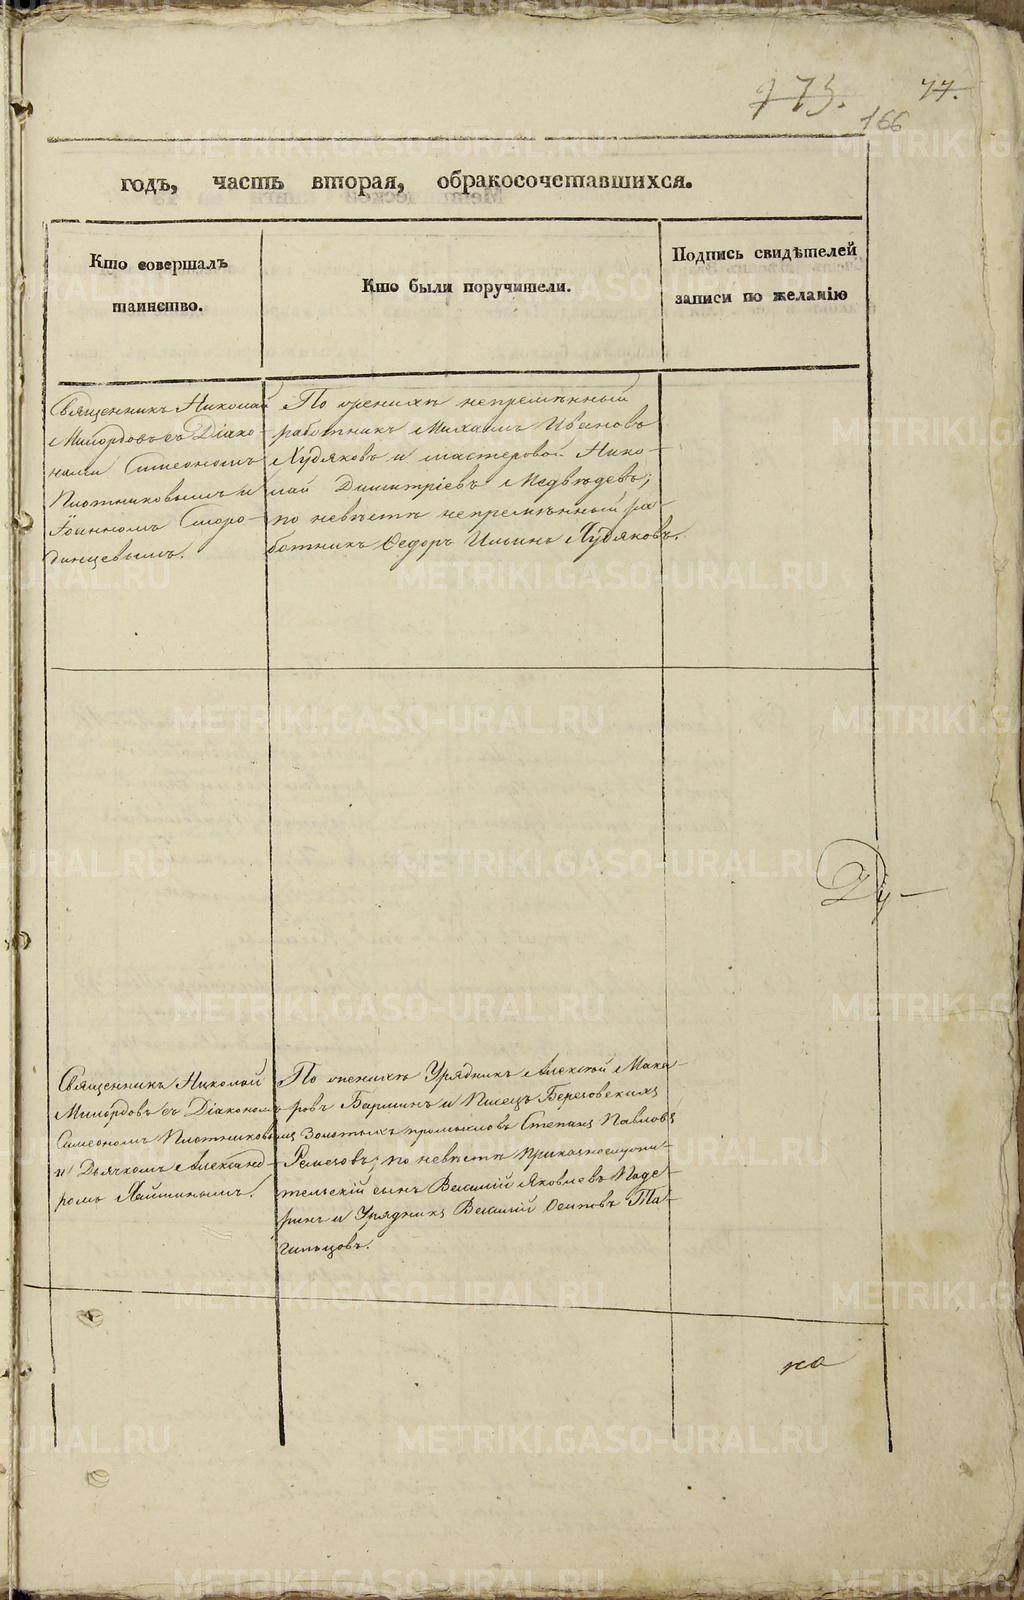 773.
77.
166
годъ, часть вторая, обракосочетавшихся.
Кто совершалъ
таинство.
Кто были поручители.
Подпись свидѣтелей
записи по желанію
Священникъ Николай
Милордовъ съ Діако-
нами Симеономъ
Плотниковымъ и
Іоанномъ Сморо-
динцевымъ.
По женихѣ непремѣнный
работникъ Михаилъ Ивановъ
Худяковъ и мастеровой Нико-
лай Димитріевъ Медвѣдевъ;
по невѣстѣ непремѣнный ра-
ботникъ Ѳедоръ Ильинъ Худяковъ.
Священникъ Николай
Милордовъ съ Діакономъ
Симеономъ Плотниковымъ
и Дьячкомъ Александ-
ромъ
По женихѣ Урядникъ Алексѣй Мака-
ровъ и Писецъ Березовскихъ
Золотыхъ промысловъ Степанъ Павловъ
Ремезовъ; по невѣстѣ Приказнослужи-
тельскій сынъ Василій Яковлевъ Паде-
ринъ и Урядникъ Василій Осиповъ Та-
гильцовъ.
на
METRIKI.GASO-URAL.RU